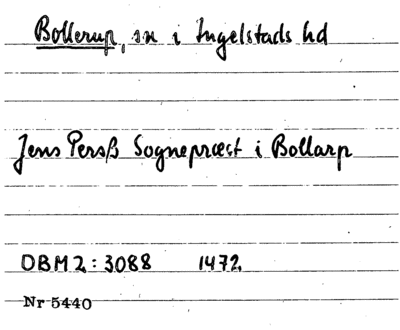 Bollerup, sn i Ingelstads hd
Jens Persß Sognepræst i Bollarp
DBM2:3088 1472
Nr 5440